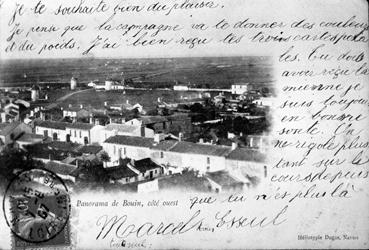 Je te souhaite bien du plaisir.
Je pense que la campagne va te donner des couleurs
et du poids. J'ai bien reçu tes trois cartes posta
les. Tu dois
avoir reçu la
mienne je
suis toujours
en bonne
santé. On
ne rigole plus
tant sur le
cours depuis
que tu n'es plus là
Panorama de Bouin, côté ouest
Marcel
Héliotypie Dugas, Nantes